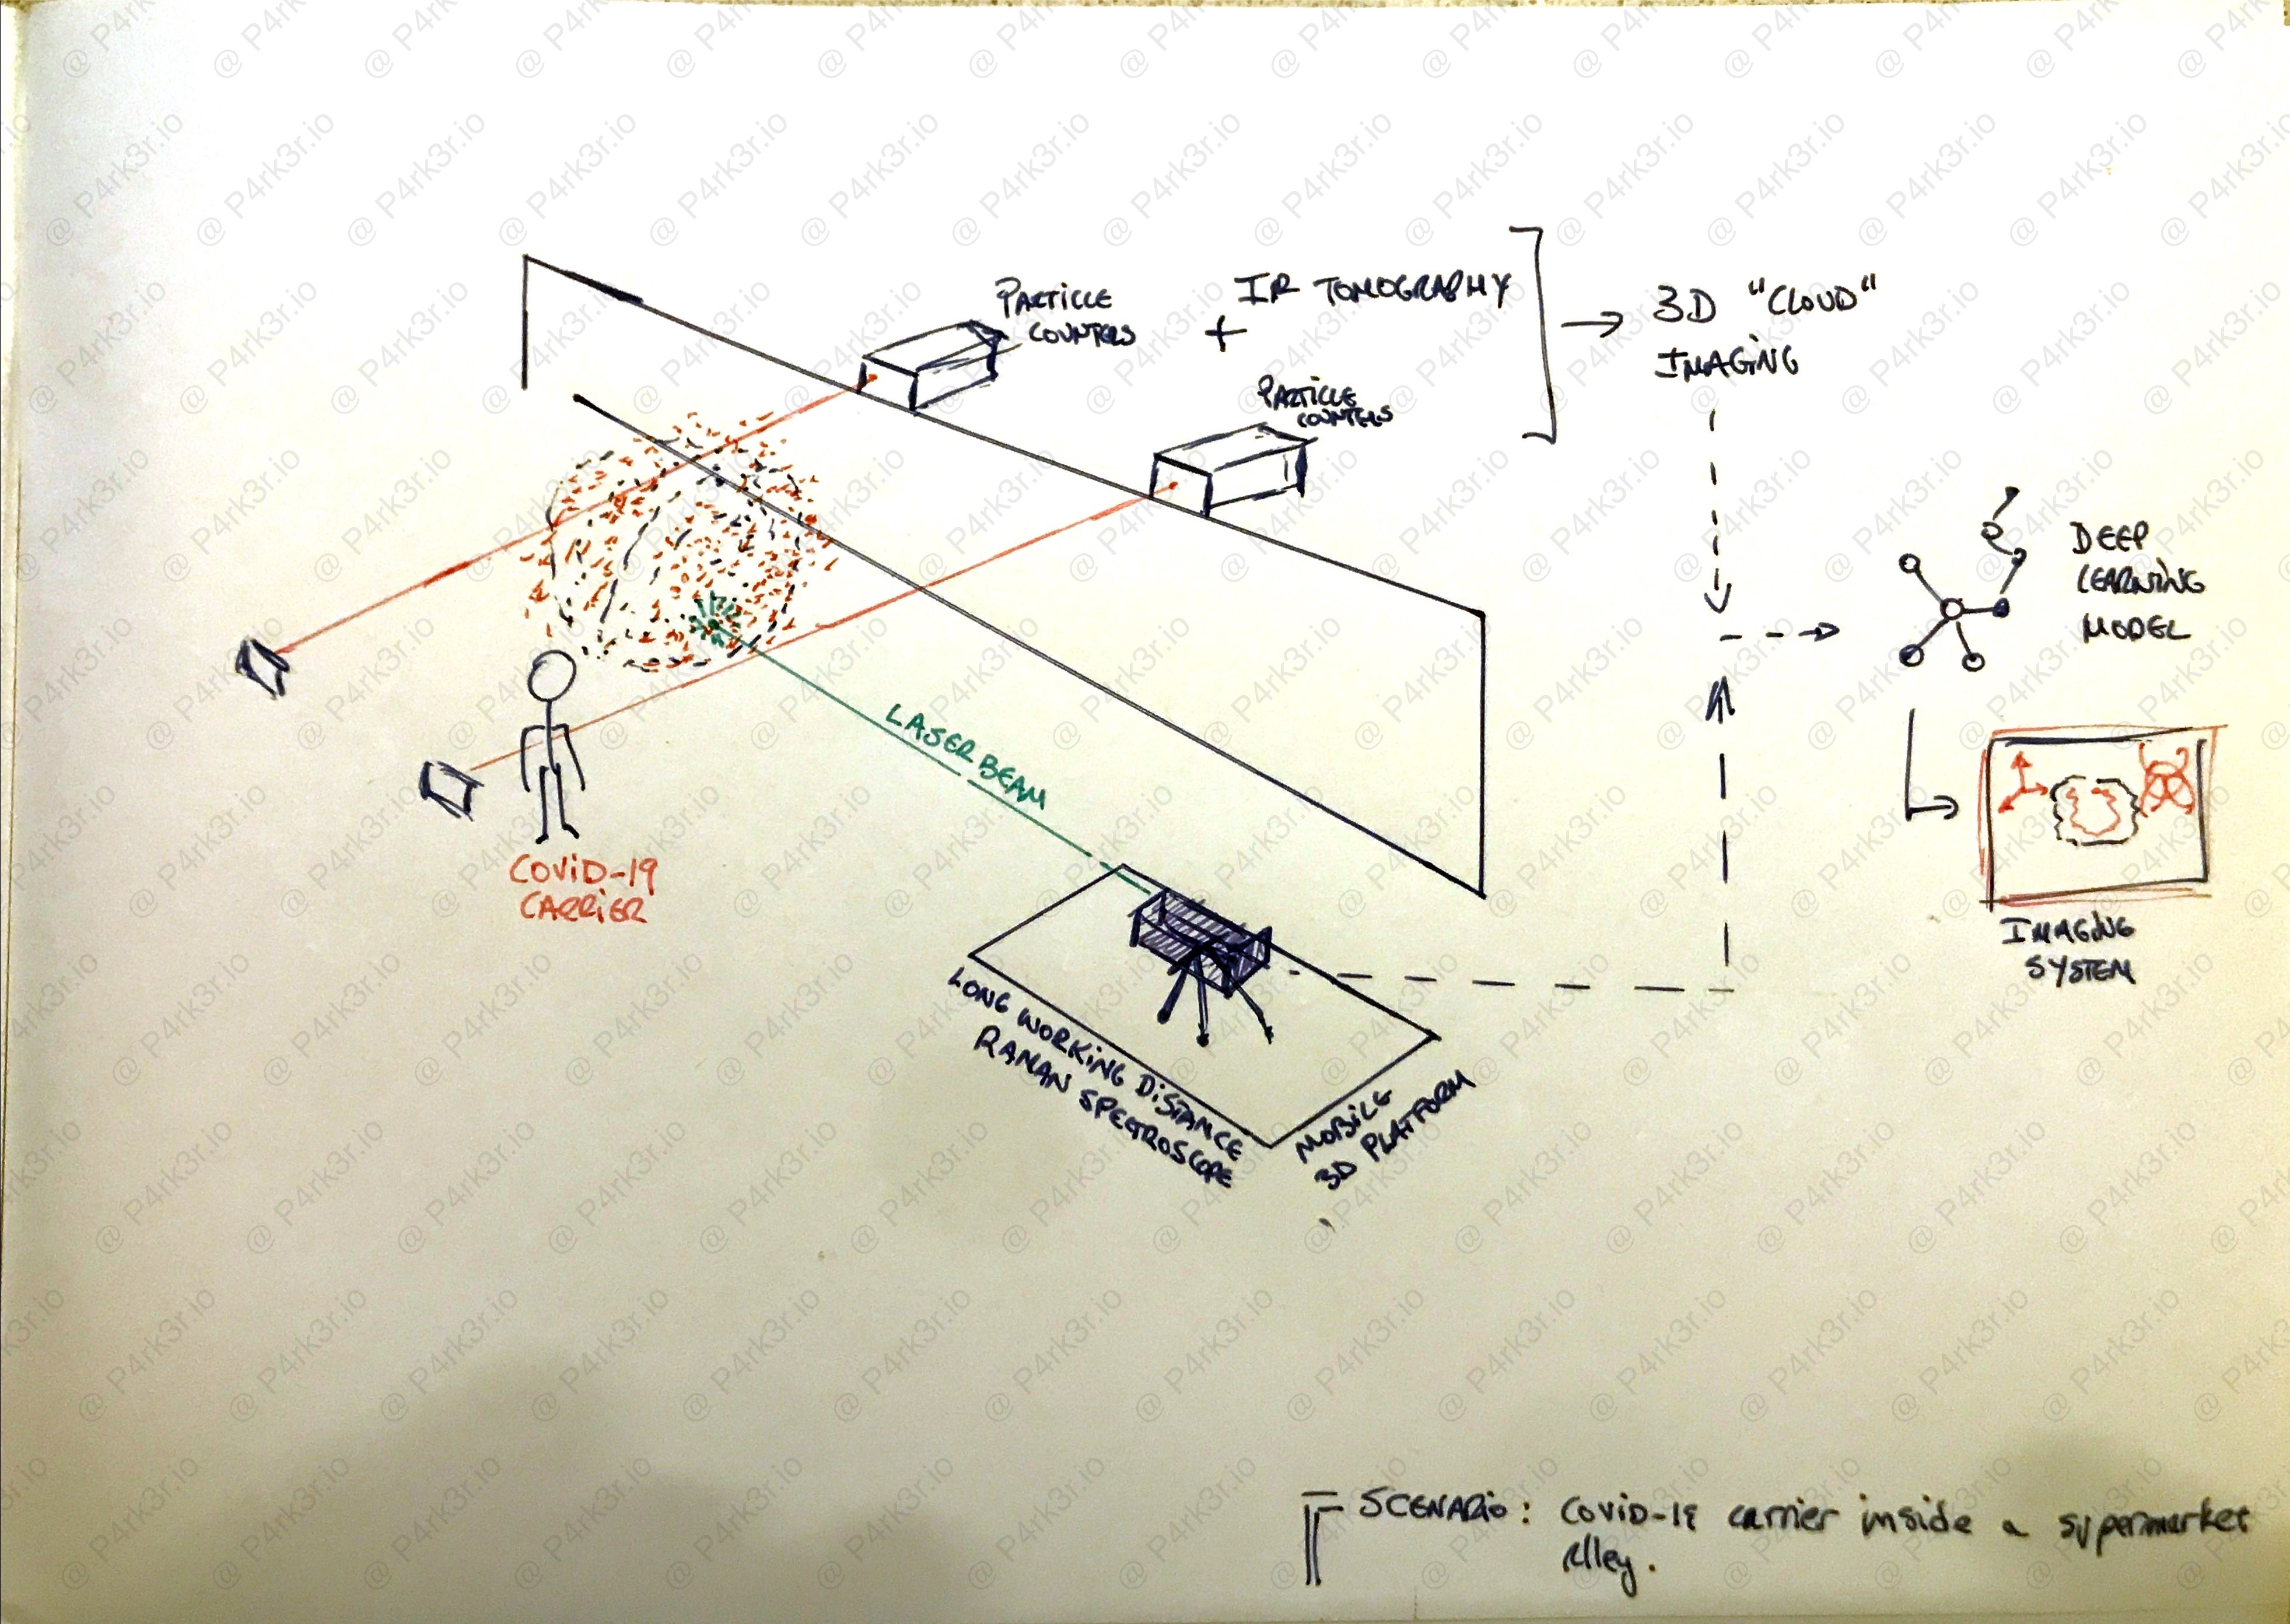 PARTICLE
COUNTERS
+
IR TOMOGRAPHY
3D "CLOUD"
IMAGING
PARTICLE
COUNTERS
DEEP
LEARNING
MODEL
LASER BEAM
COVID-19
CARRIER
IMAGING
SYSTEM
LONG WORKING DISTANCE
RAMAN SPECTROSCOPE
MOBILE
3D PLATFORM
SCENARIO: COVID-19 carrier inside a supermarket
Alley.
@ P4rk3r.io